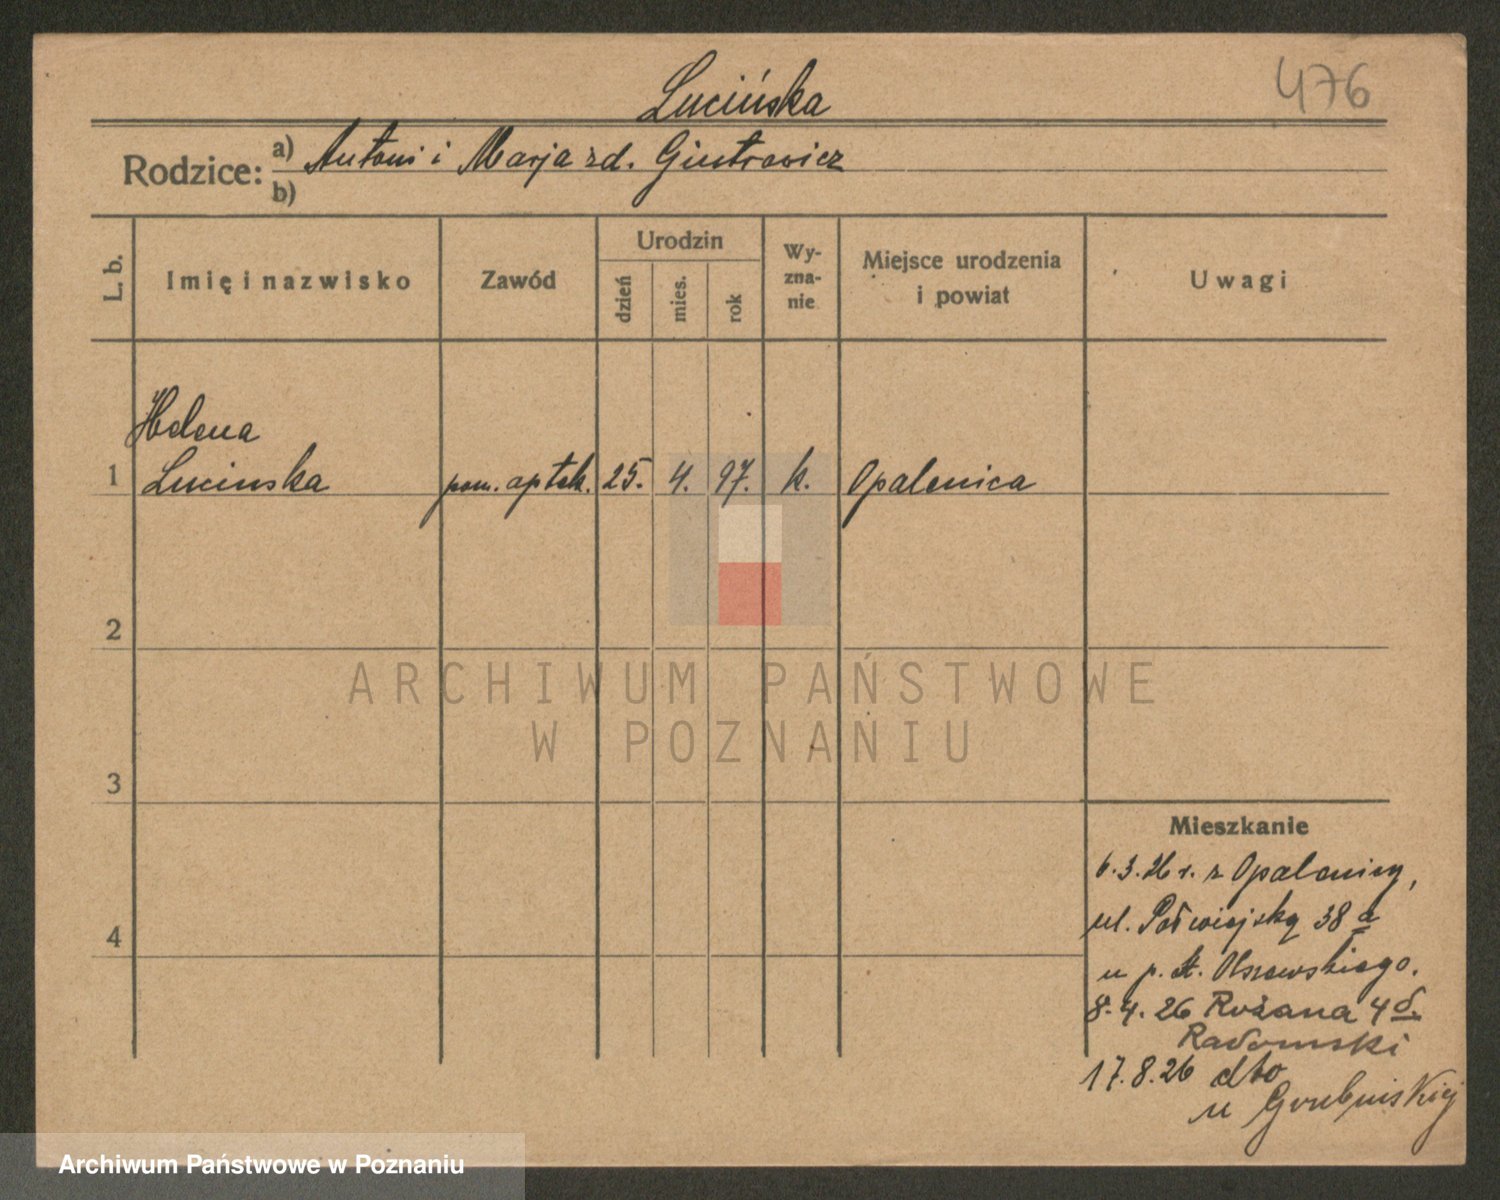 Lucińska
476
Rodzice: a) Antoni i Marja zd. Gintrowicz
b)
L. b.
Imię i nazwisko
Zawód
Urodzin
dzień
mies.
rok
Wy-
zna-
nie
Miejsce urodzenia
i powiat
Uwagi
Helena
1 Lucinska pom. aptek. 25. 4. 97. k. Opalenica
2
3
4
Mieszkanie
6.3.26 r. z Opalenicy,
ul. Półwiejską 38 a
u p. St. Olszewskiego.
8.4.26 Różana 4
Radomski
17.8.26 dto
u
ARCHIWUM PAŃSTWOWE
W POZNANIU
Archiwum Państwowe w Poznaniu